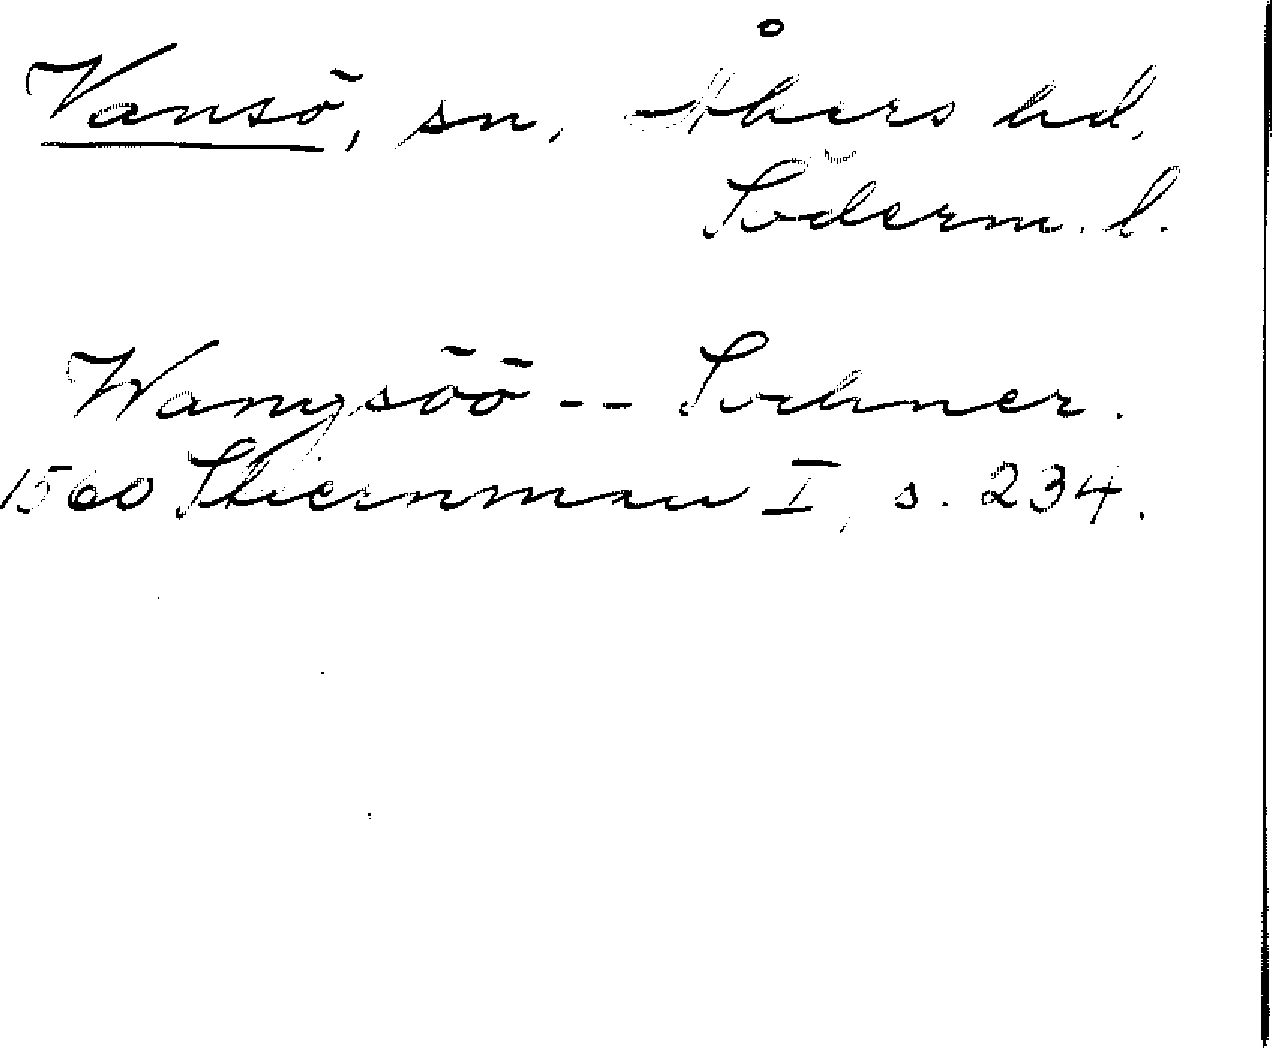 Vansö, sn, Åkers hd.
Söderm. l.
Wangsöö -- Sochner.
1560 Stiernman I, s. 234.